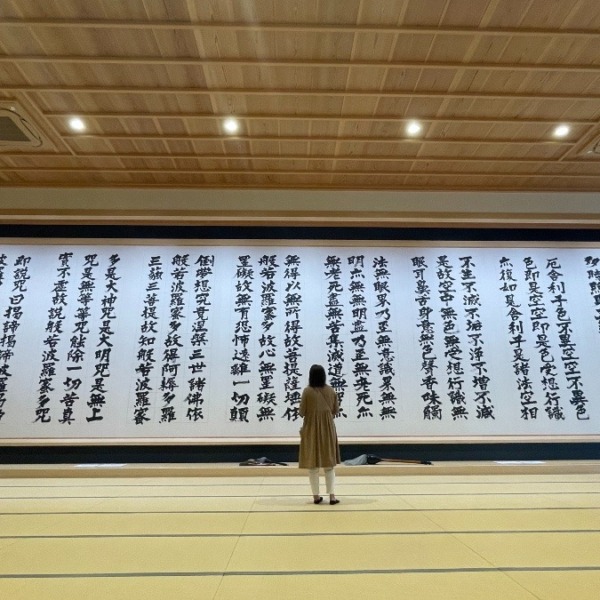 厄舍利子色不異空空不異色
色即是空空即是色受想行識
亦復如是舍利子是諸法空相
不生不滅不垢不浄不増不減
是故空中無色無受想行識無
眼耳鼻舌身意無色聲香味觸
法無眼界乃至無意識界無無
明亦無無明盡乃至無老死亦
無老死盡無苦集滅道無智亦
無得以無所得故菩提薩埵依
般若波羅蜜多故心無罣礙無
罣礙故無有恐怖遠離一切顛
倒夢想究竟涅槃三世諸佛依
般若波羅蜜多故得阿耨多羅
三藐三菩提故知般若波羅蜜
多是大神咒是大明咒是無上
咒是無等等咒能除一切苦真
實不虚故説般若波羅蜜多咒
即説咒曰揭諦揭諦波羅揭諦